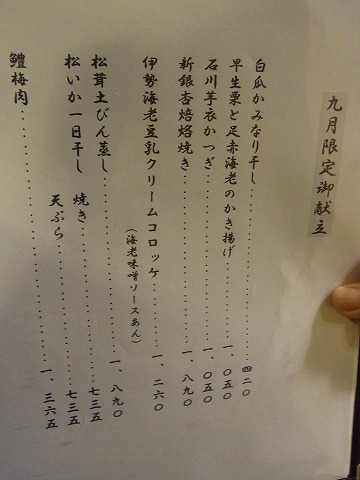 九月限定御献立
白瓜かみなり干し……四二〇
早生栗と足赤海老のかき揚げ……一、〇五〇
石川芋衣かつぎ……一、〇五〇
新銀杏焙烙焼き……一、八九〇
伊勢海老豆乳クリームコロッケ……一、二六〇
(海老味噌ソースあん)
松茸土びん蒸し……一、八九〇
松いか一日干し 焼き……七三五
天ぷら……七三五
鱧梅肉……一、三六五